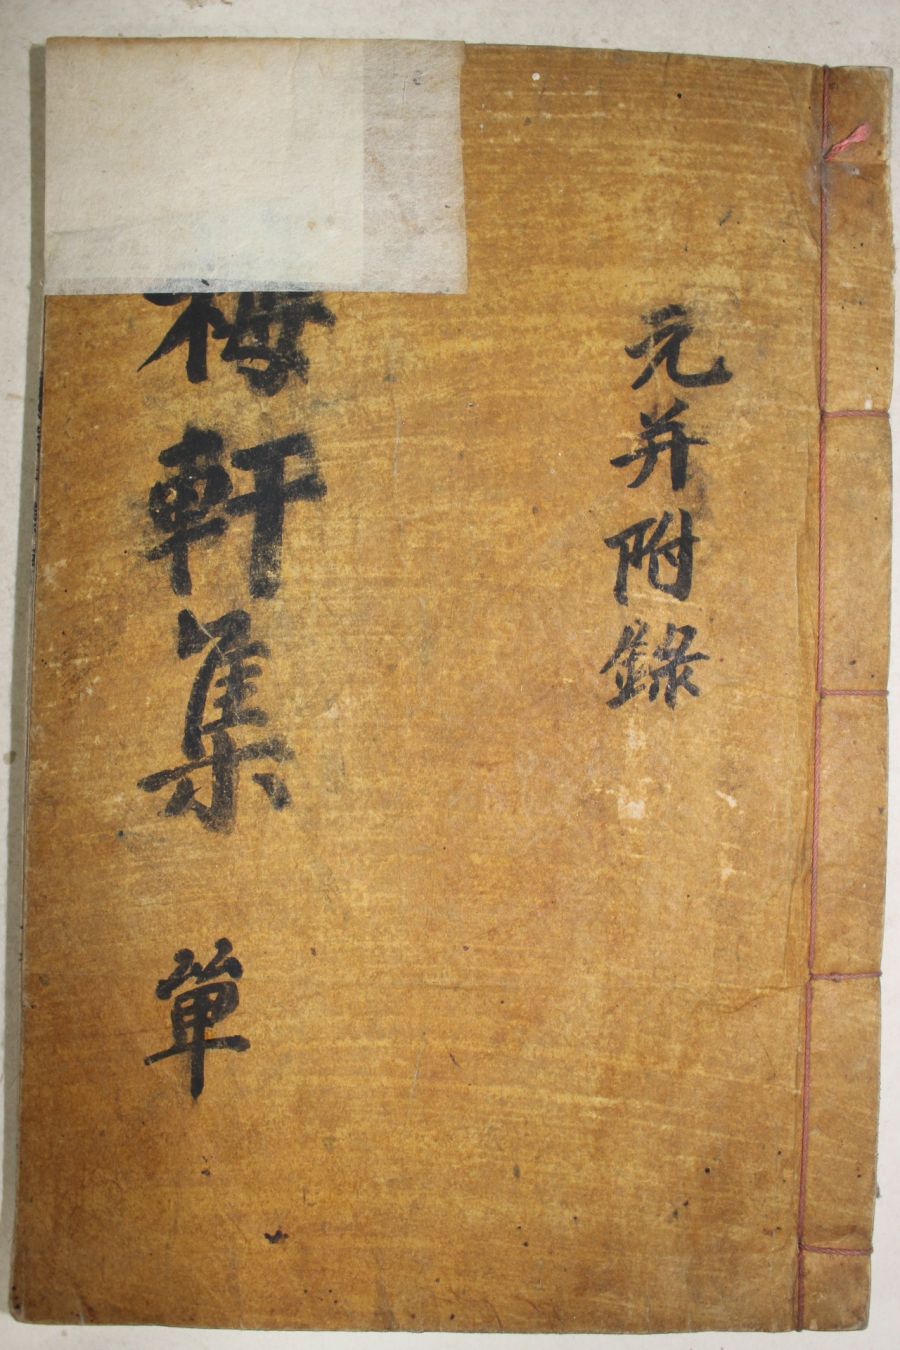 元并附錄
梅軒集 單